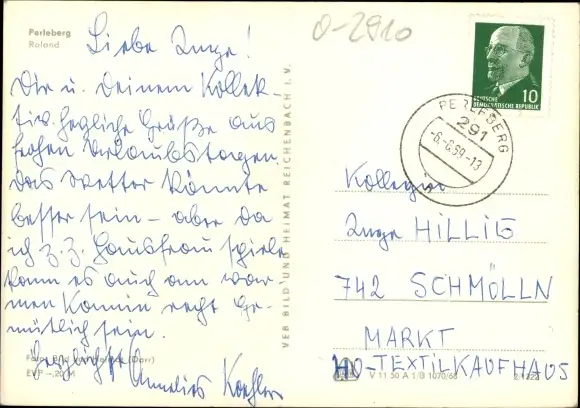 Perleberg
Roland
0-2910
Liebe Inge!
Dir u. Deinem Kollek-
tiv herzliche Grüße aus
frohen Urlaubstagen.
Das Wetter könnte
besser sein – aber da
ich z. Z. Hausfrau spiele
kann es auch am war-
men Kamin recht ge-
mütlich sein.
Herzlichst Annelies Koehler
Foto: Bild und Heimat (Dorr)
EVP –,20 M
VEB BILD UND HEIMAT REICHENBACH I. V.
10
DEUTSCHE
DEMOKRATISCHE REPUBLIK
PERLEBERG
291
-6.-6.69.-13
Kollegin
Inge HILLIG
742 SCHMÖLLN
MARKT
HO-TEXTILKAUFHAUS
V 11 50 A 1/B 1070/68